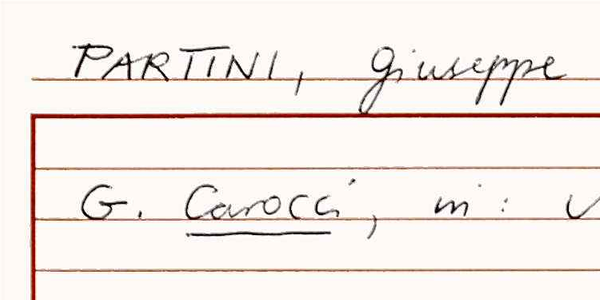 PARTINI, Giuseppe
G. Carocci, in: